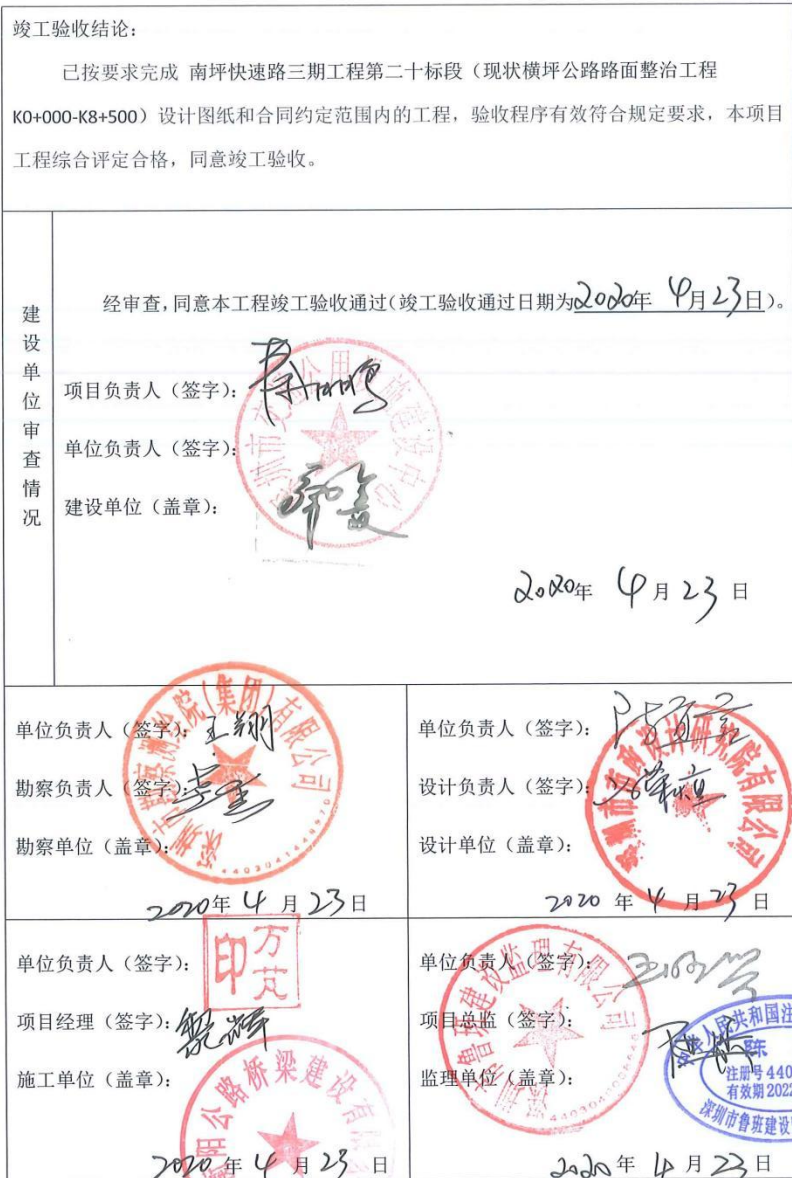 竣工验收结论:
已按要求完成 南坪快速路三期工程第二十标段（现状横坪公路路面整治工程
K0+000-K8+500）设计图纸和合同约定范围内的工程，验收程序有效符合规定要求，本项目
工程综合评定合格，同意竣工验收。
建设单位审查情况
经审查,同意本工程竣工验收通过(竣工验收通过日期为2020年 4月23日)。
项目负责人（签字）:
单位负责人（签字）:
建设单位（盖章）:
深圳市交通公用设施建设中心
2020年 4月23日
单位负责人（签字）: 王翔
勘察负责人（签字）:
勘察单位（盖章）:
深圳市勘察测绘院(集团)有限公司
2020年 4月23日
单位负责人（签字）:
设计负责人（签字）:
设计单位（盖章）:
深圳市市政设计研究院有限公司
2020 年 4 月 23 日
单位负责人（签字）:
方芃
印
项目经理（签字）:
施工单位（盖章）:
阳公路桥梁建设有限
2020 年 4 月 23 日
单位负责人（签字）:
项目总监（签字）:
监理单位（盖章）:
深圳市鲁班建设监理有限公司
人民共和国注
陈
注册号 440
有效期 2022
深圳市鲁班建设
2020 年 4 月 23 日